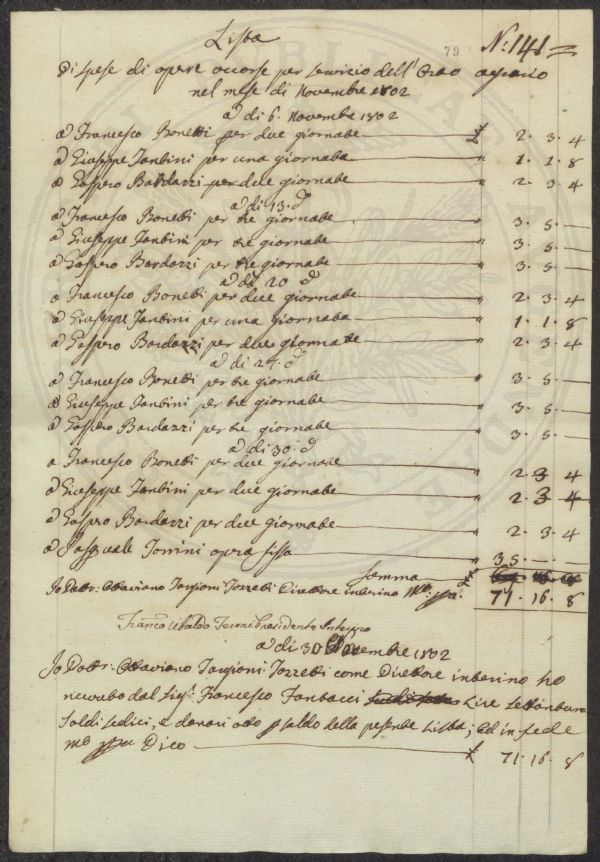 79 N: 141
Lista
Di spese di opere occorse per servizio dell'Orto agrario
nel mese di Novembre 1802
a di 6. Novembre 1802
a Francesco Bonetti per due giornate £ 2. 3. 4
a Giuseppe Fantini per una giornata " 1. 1. 8
a Gaspero Bardazzi per due giornate " 2. 3. 4
a di 13. d
a Francesco Bonetti per tre giornate " 3. 5. —
a Giuseppe Fantini per tre giornate " 3. 5. —
a Gaspero Bardazzi per tre giornate " 3. 5. —
a di 20 d
a Francesco Bonetti per due giornate " 2. 3. 4
a Giuseppe Fantini per una giornata " 1. 1. 8
a Gaspero Bardazzi per due giornate " 2. 3. 4
a di 27. d
a Francesco Bonetti per tre giornate " 3. 5. —
a Giuseppe Fantini per tre giornate " 3. 5. —
a Gaspero Bardazzi per tre giornate " 3. 5. —
a di 30. d
a Francesco Bonetti per due giornate " 2. 3. 4
a Giuseppe Fantini per due giornate " 2. 3. 4
a Gaspero Bardazzi per due giornate " 2. 3. 4
a Pasquale Torrini opera fissa " 35. — —
Somma £
Io Dottr. Ottaviano Targioni Tozzetti Direttore interino mo ppa. 71. 16. 8
Franco Ubaldo Feroni Presidente Interino
a di 30 Novembre 1802
Io Dottr. Ottaviano Targioni Tozzetti come Direttore interino ho
ricevuto dal Sigr. Francesco Fantacci Lire Settantuna
Soldi sedici, e denari otto p saldo della presente Lista; ed in fede
mo ppa Dico £ 71. 16. 8